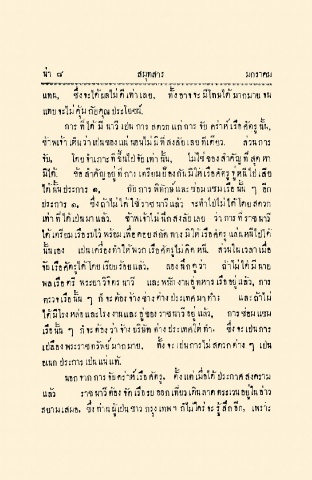 น่า ๘ สมุทสาร มกราคม
แทน, ซึ่งจะได้ผลไม่ดีเท่าเลย. ทั้งอาจจะมีโทษได้มากมาย จน
แทบจะไม่คุ้มกับคุณประโยชน์.
การที่ได้มีนาวีเป็นการสดวกแก่การจับคร่าห์เรือศัตรูนั้น,
ข้าพเจ้าเห็นว่าเปนของแน่นอนไม่มีที่สงสัยเลยทีเดียว. ส่วนการ
จับ, โดยจำเภาะที่ขึ้นไปจับเท่านั้น, ไม่ใช่ของสำคัญที่สุดหา
มิได้. ข้อสำคัญอยู่ที่การเตรียมป้องกันมิให้เรือศัตรูจู่หนีไปเสีย
ได้นั้นประการ ๑, กับการพิทักษ์และซ่อมแซมเรือนั้น ๆ อีก
ประการ ๑, ซึ่งถ้าไม่ได้ใช้ราชนาวีแล้ว จะทำไปไม่ได้โดยสดวก
เท่าที่ได้เป็นมาแล้ว. ข้าพเจ้าไม่นึกสงสัยเลย ว่าการที่ราชนาวี
ได้เตรียมเรือรบไว้พร้อมเพื่อคอยสกัดทางมิให้เรือศัตรูแล่นหนีไปได้
นั้นเอง เป็นเครื่องทำให้พวกเรือศัตรูไม่คิดหนี. ส่วนในเวลาเมื่อ
จับเรือศัตรูได้โดยเรียบร้อยแล้ว, ลองนึกดูว่า ถ้าไม่ได้มีนาย
พลเรือตรี พระยาวิจิตรนาวี และพนักงานอู่ทหารเรืออยู่แล้ว, การ
ตรวจเรือนั้น ๆ ก็จะต้องจ้างช่างต่างประเทศมาทำ และถ้าไม่
ได้มีโรงหล่อและโรงงานและอู่ของราชนาวีอยู่แล้ว, การซ่อมแซม
เรือนั้น ๆ ก็จะต้องว่าจ้างบริษัทต่างประเทศให้ทำ, ซึ่งจะเป็นการ
เปลืองพระราชทรัพย์มากมาย. ทั้งจะเป็นการไม่สดวกต่าง ๆ เป็น
อเนกประการเป็นแน่แท้.
นอกจากการจับคร่าห์เรือศัตรู, ตั้งแต่เมื่อได้ประกาศสงคราม
แล้ว ราชนาวีต้องจัดเรือรบออกเที่ยวเดินลาดตระเวนอยู่ในอ่าว
สยามเสมอ, ซึ่งท่านผู้เป็นชาวกรุงเทพฯ ก็ไม่ใคร่จะรู้สึกอีก, เพราะ